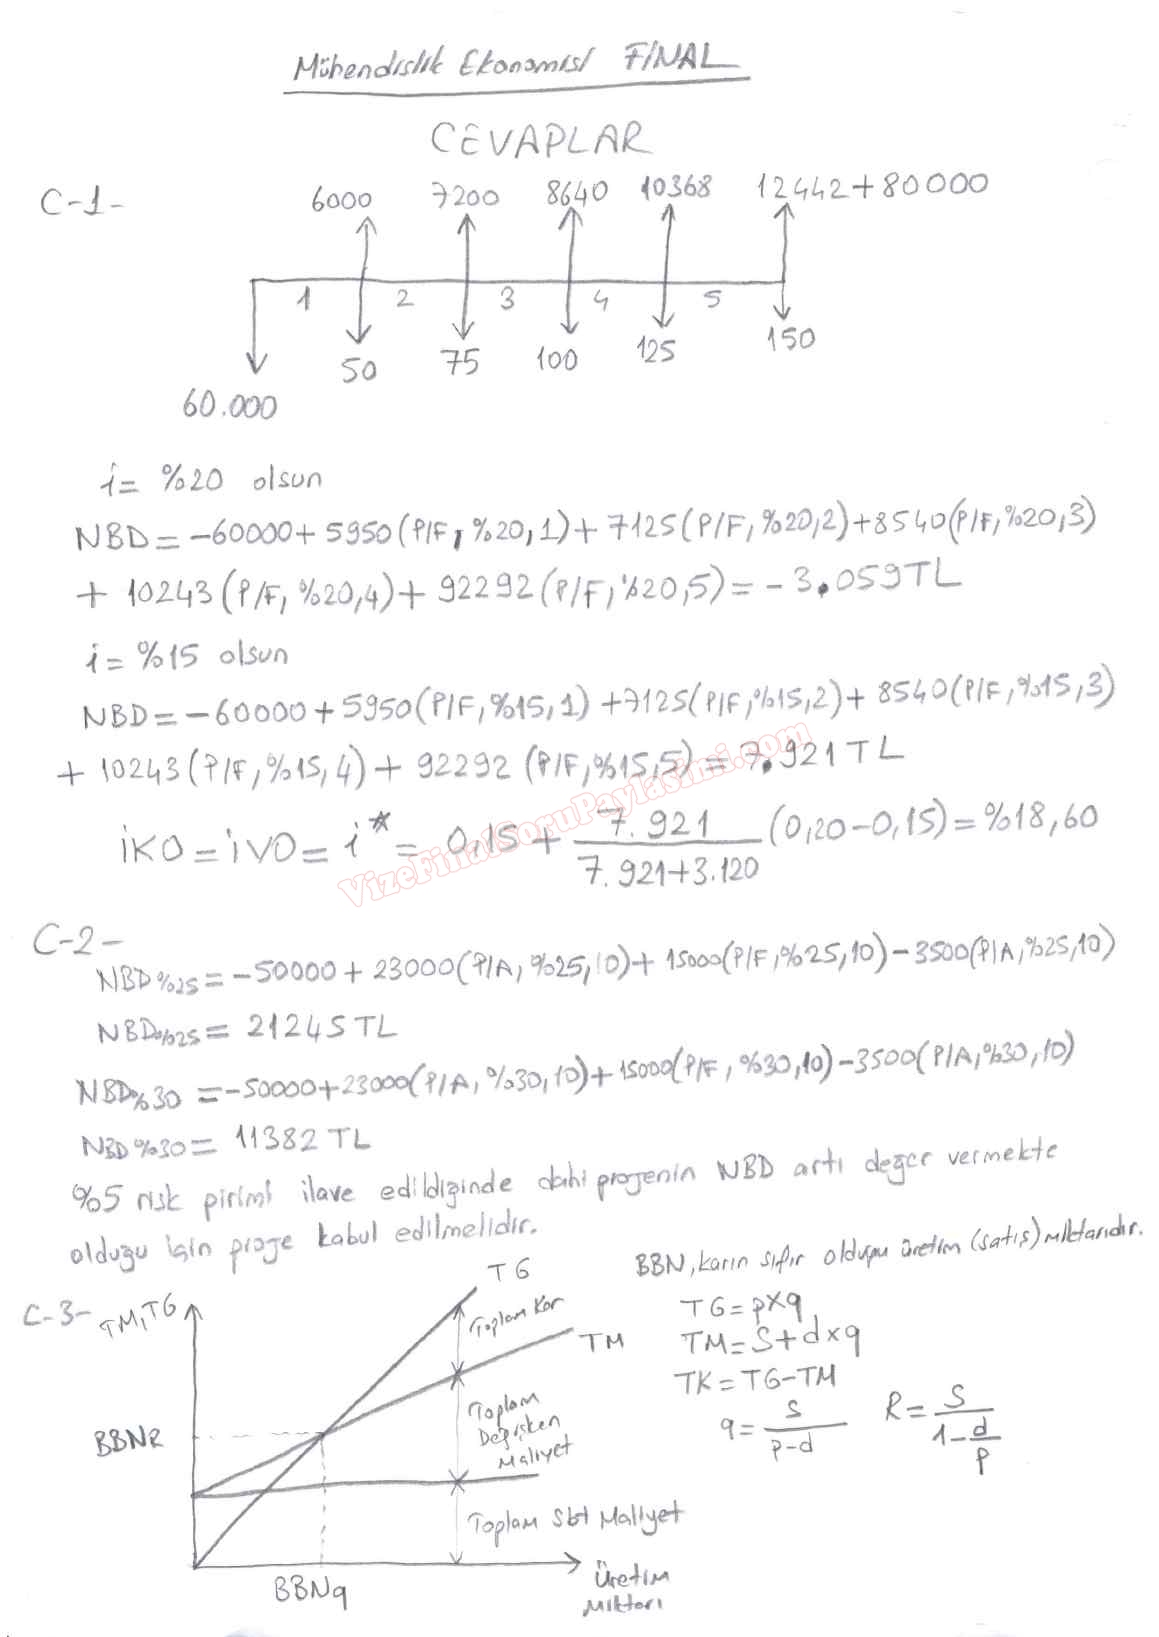 Mühendislik Ekonomisi FİNAL
CEVAPLAR
C-1-
6000 7200 8640 10368 12442+80000
1 2 3 4 5
50 75 100 125 150
60.000
i= %20 olsun
NBD=-60000+5950(P/F,%20,1)+7125(P/F,%20,2)+8540(P/F,%20,3)
+ 10243(P/F,%20,4)+92292(P/F,%20,5)=-3.059TL
i=%15 olsun
NBD=-60000+5950(P/F,%15,1)+7125(P/F,%15,2)+8540(P/F,%15,3)
+ 10243(P/F,%15,4)+92292(P/F,%15,5)=7.921TL
İKO=İVO=i*=0,15+ 7.921/7.921+3.120 (0,20-0,15)=%18,60
VizeFinalSoruPaylasimi.com
C-2-
NBD%25=-50000+23000(P/A,%25,10)+15000(P/F,%25,10)-3500(P/A,%25,10)
NBD%25=21245TL
NBD%30=-50000+23000(P/A,%30,10)+15000(P/F,%30,10)-3500(P/A,%30,10)
NBD%30=11382TL
%5 risk pirimi ilave edildiğinde dahi projenin NBD artı değer vermekte
olduğu için proje kabul edilmelidir.
C-3-
TM,TG
TG
Toplam Kar
TM
Toplam
Değişken
Maliyet
BBNR
Toplam Sbt Maliyet
BBNq
Üretim
Miktarı
BBN, karın sıfır olduğu üretim (satış) miktarıdır.
TG=pxq
TM=S+dxq
TK=TG-TM
q= S/p-d R= S/1-d/p